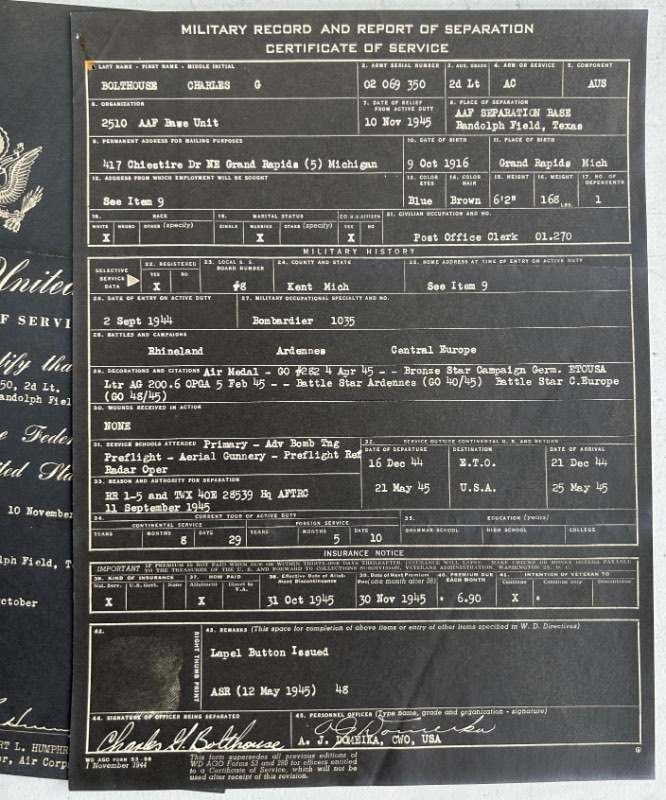 MILITARY RECORD AND REPORT OF SEPARATION
CERTIFICATE OF SERVICE
1. LAST NAME - FIRST NAME - MIDDLE INITIAL 2. ARMY SERIAL NUMBER 3. AUS. GRADE 4. ARM OR SERVICE 5. COMPONENT
BOLTHOUSE CHARLES G 02 069 350 2d Lt AC AUS
6. ORGANIZATION 7. DATE OF RELIEF FROM ACTIVE DUTY 8. PLACE OF SEPARATION
2510 AAF Base Unit 10 Nov 1945 AAF SEPARATION BASE
Randolph Field, Texas
9. PERMANENT ADDRESS FOR MAILING PURPOSES 10. DATE OF BIRTH 11. PLACE OF BIRTH
417 Chiestire Dr NE Grand Rapids (5) Michigan 9 Oct 1916 Grand Rapids Mich
12. ADDRESS FROM WHICH EMPLOYMENT WILL BE SOUGHT 13. COLOR EYES 14. COLOR HAIR 15. HEIGHT 16. WEIGHT 17. NO. OF DEPENDENTS
See Item 9 Blue Brown 6'2" 168 LBS. 1
18. RACE 19. MARITAL STATUS 20. U.S. CITIZEN 21. CIVILIAN OCCUPATION AND NO.
WHITE NEGRO OTHER (specify) SINGLE MARRIED OTHER (specify) YES NO
X X X Post Office Clerk 01.270
MILITARY HISTORY
SELECTIVE SERVICE DATA 22. REGISTERED YES NO 23. LOCAL S. S. BOARD NUMBER 24. COUNTY AND STATE 25. HOME ADDRESS AT TIME OF ENTRY ON ACTIVE DUTY
X #8 Kent Mich See Item 9
26. DATE OF ENTRY ON ACTIVE DUTY 27. MILITARY OCCUPATIONAL SPECIALTY AND NO.
2 Sept 1944 Bombardier 1035
28. BATTLES AND CAMPAIGNS
Rhineland Ardennes Central Europe
29. DECORATIONS AND CITATIONS Air Medal - GO #282 4 Apr 45 - - Bronze Star Campaign Germ. ETOUSA
Ltr AG 200.6 OPGA 5 Feb 45 - - Battle Star Ardennes (GO 40/45) Battle Star C.Europe
(GO 48/45)
30. WOUNDS RECEIVED IN ACTION
NONE
31. SERVICE SCHOOLS ATTENDED Primary - Adv Bomb Tng
Preflight - Aerial Gunnery - Preflight Ref
Radar Oper
32. SERVICE OUTSIDE CONTINENTAL U. S. AND RETURN
DATE OF DEPARTURE DESTINATION DATE OF ARRIVAL
16 Dec 44 E.T.O. 21 Dec 44
21 May 45 U.S.A. 25 May 45
33. REASON AND AUTHORITY FOR SEPARATION
RR 1-5 and TWX 40E 28539 Hq AFTRC
11 September 1945
34. CURRENT TOUR OF ACTIVE DUTY 35. EDUCATION (years)
CONTINENTAL SERVICE FOREIGN SERVICE GRAMMAR SCHOOL HIGH SCHOOL COLLEGE
YEARS MONTHS DAYS YEARS MONTHS DAYS
8 29 5 10
INSURANCE NOTICE
IMPORTANT IF PREMIUM IS NOT PAID WHEN DUE OR WITHIN THIRTY-ONE DAYS THEREAFTER, INSURANCE WILL LAPSE. MAKE CHECKS OR MONEY ORDERS PAYABLE
TO THE TREASURER OF THE U. S. AND FORWARD TO COLLECTIONS SUBDIVISION, VETERANS ADMINISTRATION, WASHINGTON 25, D. C.
36. KIND OF INSURANCE 37. HOW PAID 38. Effective Date of Allotment Discontinuance 39. Date of Next Premium Due (one month after 38) 40. PREMIUM DUE EACH MONTH 41. INTENTION OF VETERAN TO
Nat. Serv. U.S. Govt. None Allotment Direct to V.A. Continue Continue only Discontinue
X X 31 Oct 1945 30 Nov 1945 6.90 X
42. RIGHT THUMB PRINT
43. REMARKS (This space for completion of above items or entry of other items specified in W. D. Directives)
Lapel Button Issued
ASR (12 May 1945) 48
44. SIGNATURE OF OFFICER BEING SEPARATED 45. PERSONNEL OFFICER (Type name, grade and organization - signature)
Charles G. Bolthouse A. J. Domeika
A. J. DOMEIKA, CWO, USA
WD AGO FORM 53-98
1 November 1944
This form supersedes all previous editions of
WD AGO Forms 53 and 280 for officers entitled
to a Certificate of Service, which will not be
used after receipt of this revision.
United
OF SERVI
tify tha
50, 2d Lt.
andolph Fiel
e Feder
ted Sta
10 November
olph Field, T
ctober
RT L. HUMPHR
r, Air Corp